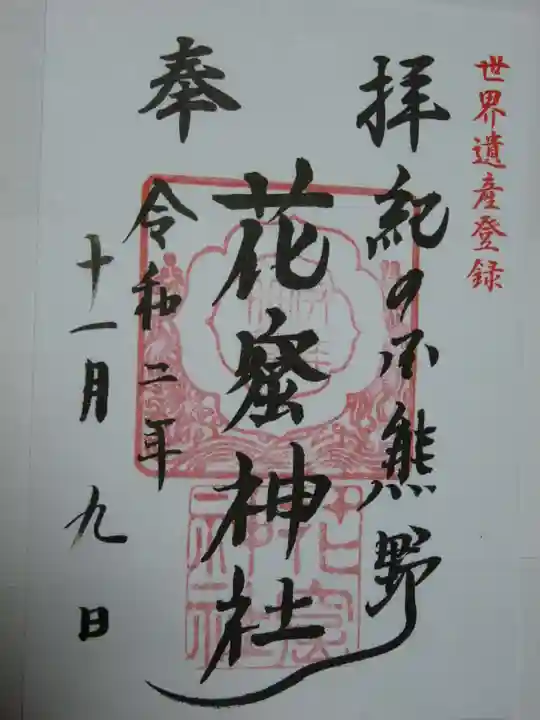 世界遺産登録
奉拝
紀の国熊野
花窟神社
令和二年
十一月九日
花窟神社